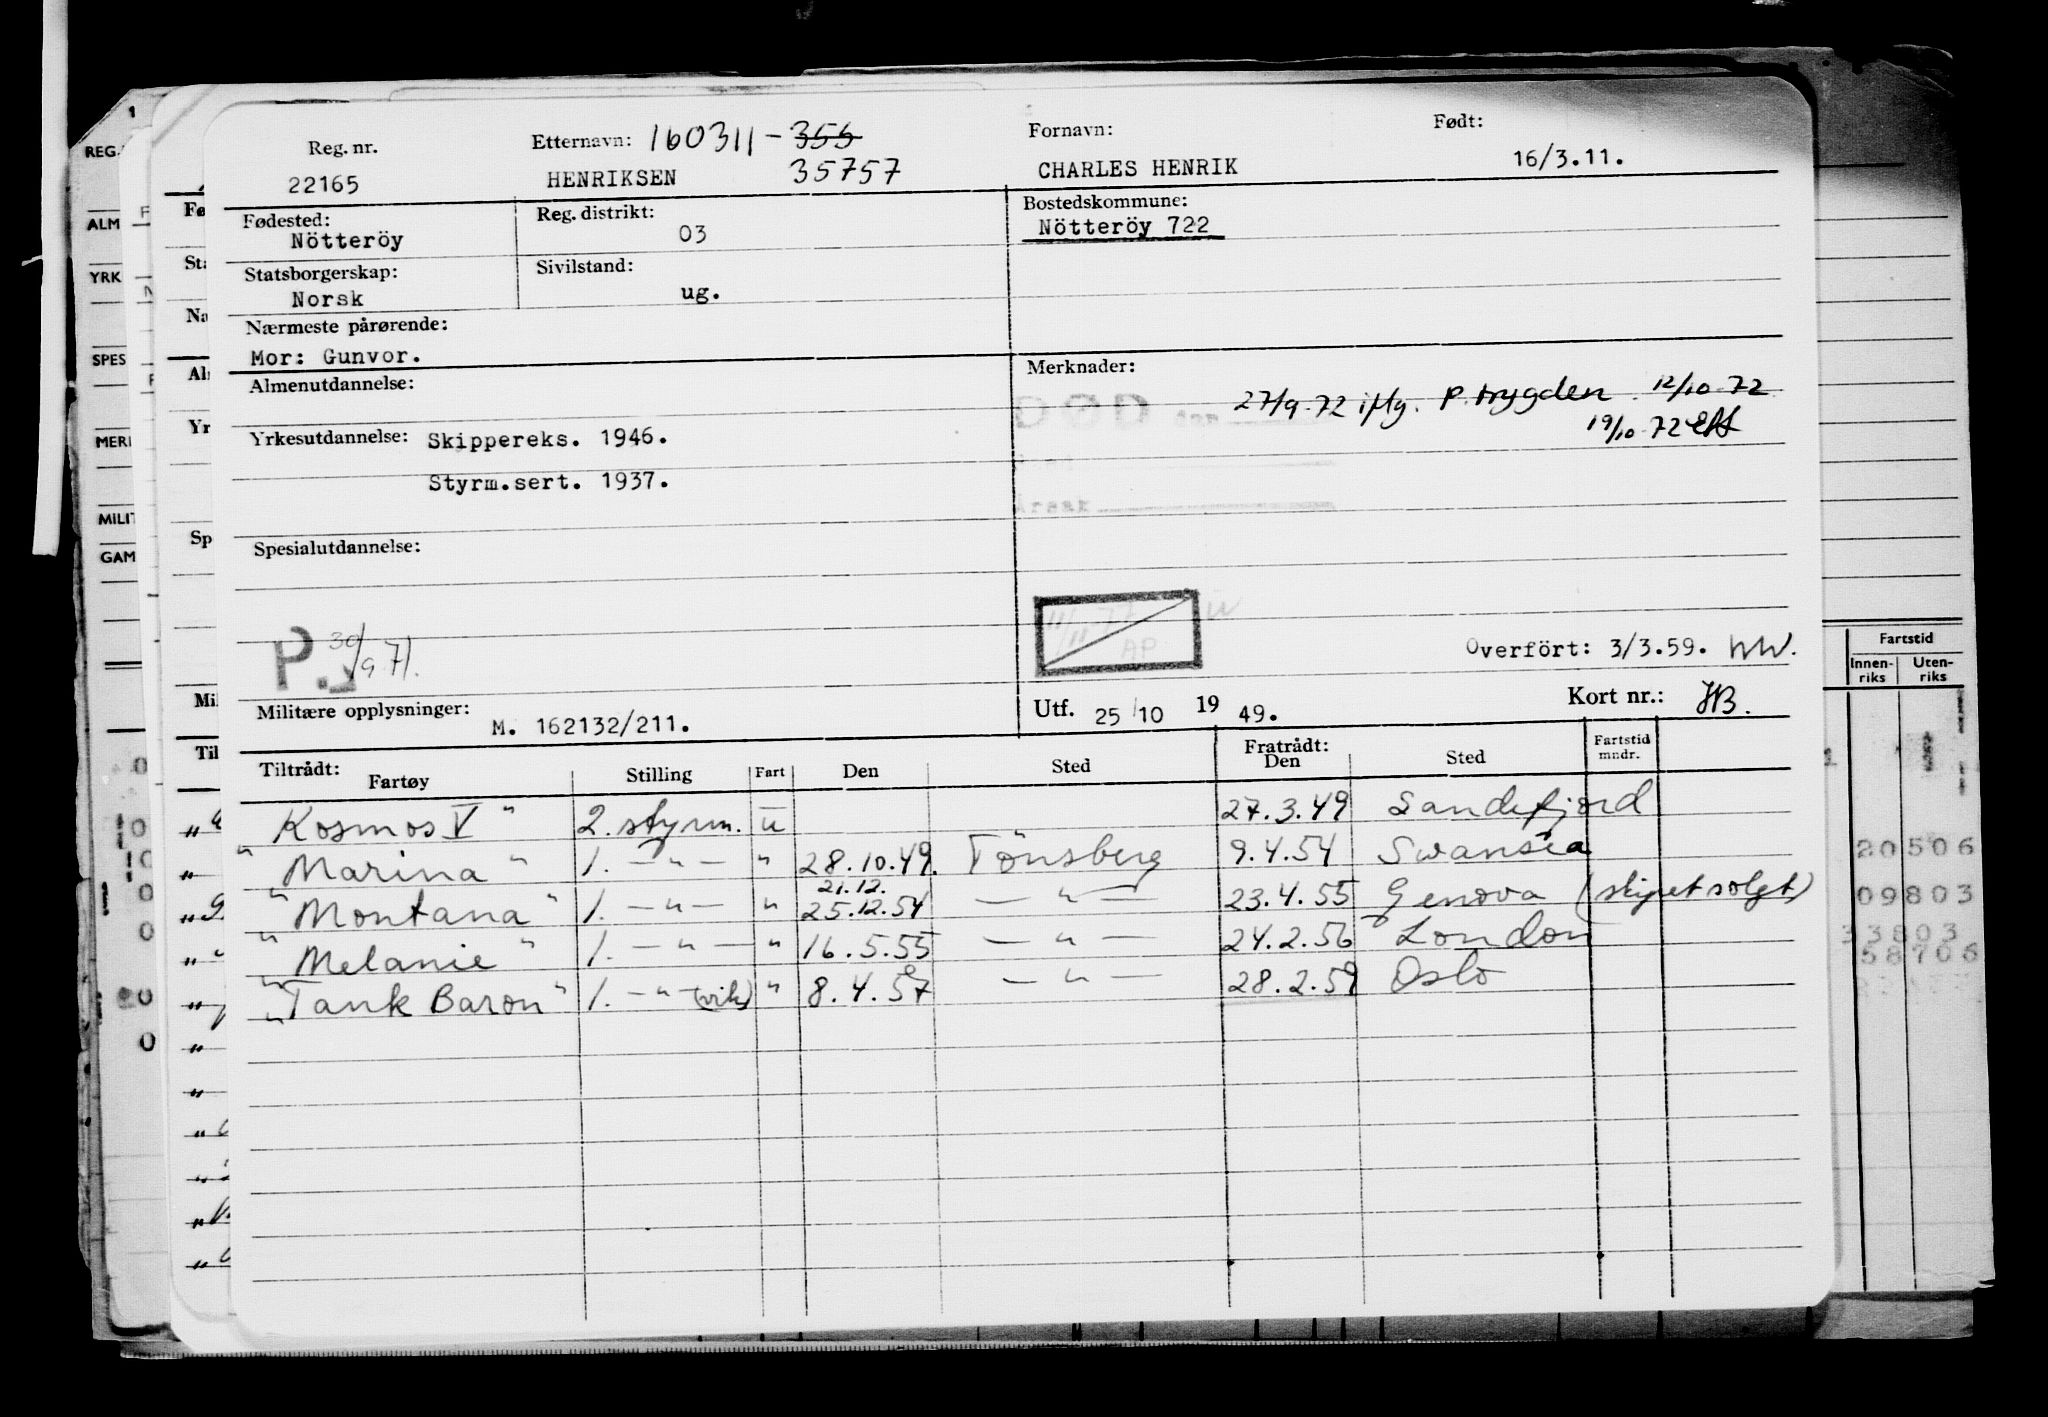 Reg. nr. Etternavn: 160311-355 Fornavn: Født:
22165 HENRIKSEN 35757 CHARLES HENRIK 16/3.11.
Fødested: Reg. distrikt: Bostedskommune:
Nötteröy 03 Nötteröy 722
Statsborgerskap: Sivilstand:
Norsk ug.
Nærmeste pårørende:
Mor: Gunvor.
Almenutdannelse: Merknader:
DØD den 27/9-72 iflg. P.trygden 12/10-72
19/10-72
Yrkesutdannelse: Skippereks. 1946.
Styrm.sert. 1937.
Spesialutdannelse:
P. 30/9 71.
AP
Overført: 3/3.59.
Militære opplysninger: M. 162132/211. Utf. 25/10 19 49. Kort nr.: HB.
Tiltrådt: Fartøy Stilling Fart Den Sted Fratrådt: Den Sted Fartstid mndr.
Kosmos V " 2. styrm. u 27.3.49 Sandefjord
" Marina " 1. — " — " 28.10.49. Tönsberg 9.4.54 Swansea
21.12.
" Montana " 1. — " — " 25.12.54 — " — 23.4.55 Genova (skipet solgt)
" Melanie " 1. — " — " 16.5.55 — " — 24.2.56 London
" Tank Baron " 1. — " — (vik) " 8.4.57 — " — 28.2.59 Oslo
REG.
ALM
YRK
SPES
MERK
MILIT
GAM
Fø
Sta
Na
Al
Yr
Sp
Mil
Til
Fartstid
Innen-riks Uten-riks
20506
09803
33803
58706